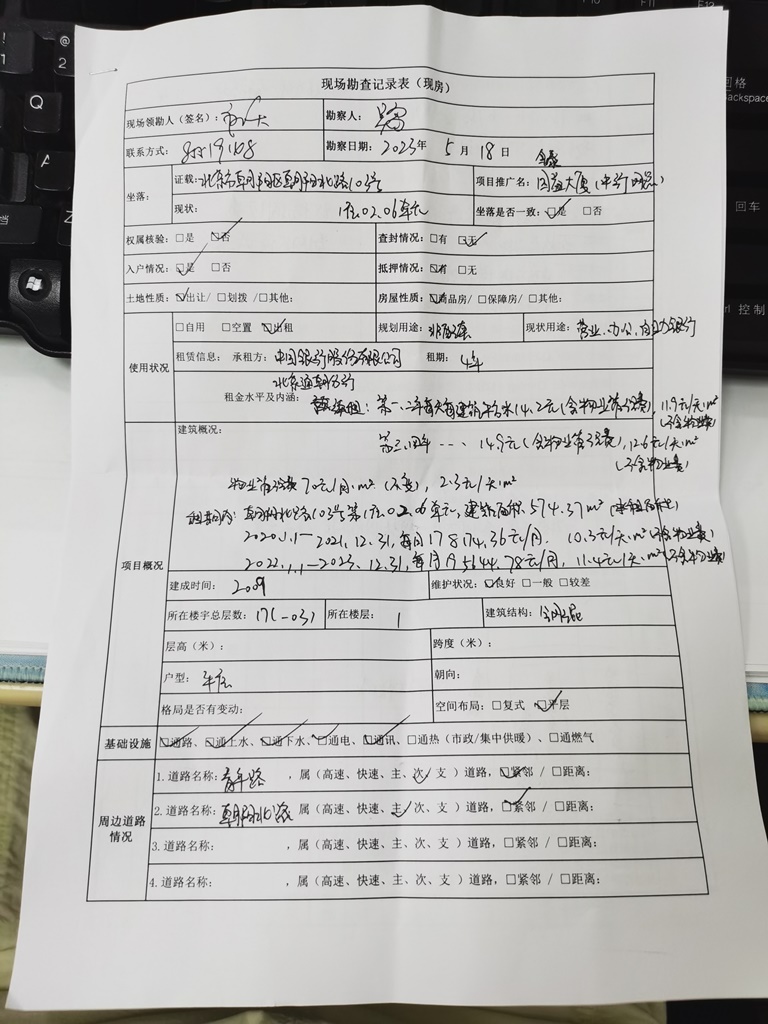 现场勘查记录表（现房）
现场领勘人（签名）： 勘察人：
联系方式： 勘察日期：2023年 5月18日
坐落： 证载：北京市朝阳区朝阳北路103号 项目推广名：大厦（中行网点）
现状： 1层02.06单元 坐落是否一致：☑是 □否
权属核验：□是 ☑否 查封情况：□有 ☑无
入户情况：☑是 □否 抵押情况：☑有 □无
土地性质：☑出让/□划拨/□其他： 房屋性质：☑商品房/□保障房/□其他：
使用状况 □自用 □空置 ☑出租 规划用途： 现状用途：营业、办公、自助银行
租赁信息： 承租方：中国银行股份有限公司 租期：4年
北京通朝分行
租金水平及内涵： 第一、二年每天每建筑平方米14.2元（含物业管理费），11.9元/天·m²（不含物业费）
建筑概况： 第三、四年 --- 14.9元（含物业管理费），12.6元/天·m²（不含物业费）
物业管理费70元/月·m²（不变），2.3元/天·m²
租期内：朝阳北路103号第1层02.06单元，建筑面积574.37m²
2020.1.1—2021.12.31，每月178174.36元/月， 10.3元/天·m²（不含物业费）
2022.1.1—2023.12.31，每月195644.78元/月，11.4元/天·m²（不含物业费）
项目概况
建成时间：2009 维护状况：☑良好 □一般 □较差
所在楼宇总层数：17(-03) 所在楼层： 1 建筑结构：钢混
层高（米）： 跨度（米）：
户型：平层 朝向：
格局是否有变动： 空间布局：□复式 ☑平层
基础设施 ☑通路、☑通上水、☑通下水、☑通电、☑通讯、□通热（市政/集中供暖）、□通燃气
周边道路情况
1.道路名称：青年路 ，属（高速、快速、主、次、支）道路，☑紧邻 / □距离：
2.道路名称：朝阳北路 ，属（高速、快速、主、次、支）道路，☑紧邻 / □距离：
3.道路名称： ，属（高速、快速、主、次、支）道路，□紧邻 / □距离：
4.道路名称： ，属（高速、快速、主、次、支）道路，□紧邻 / □距离：